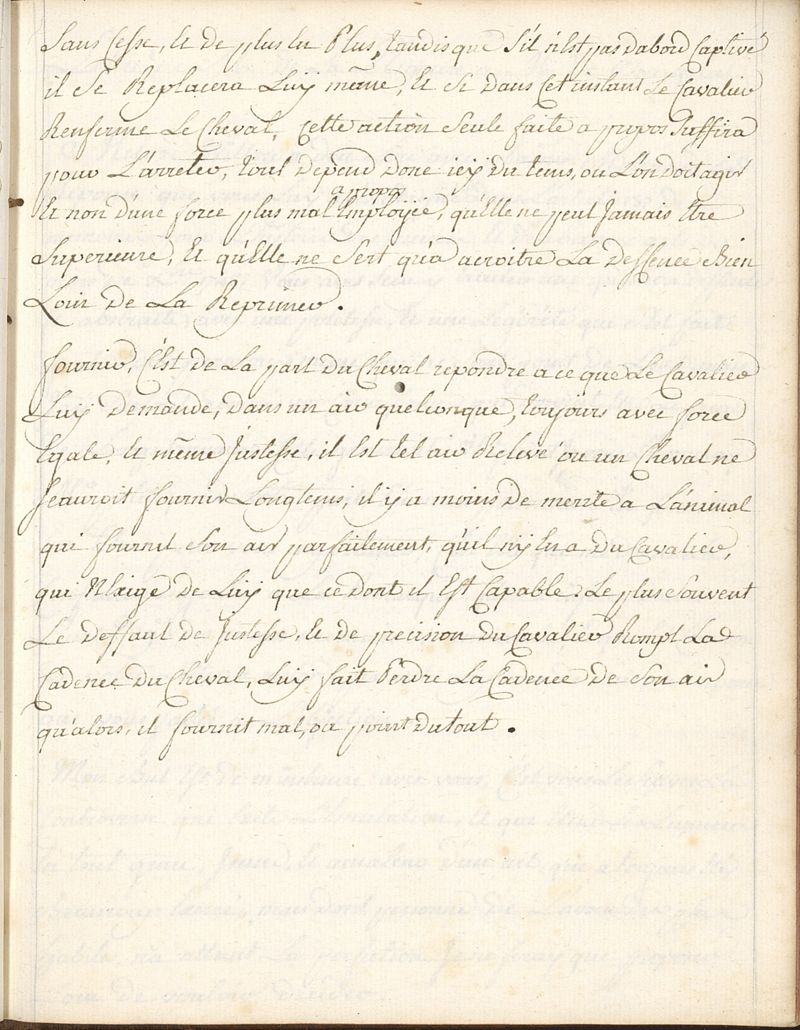 Sans Cesse, et de plus en Plus, tandis que s'il n'Est pas dabord Captivé
il Se Replacera Luy même, Et Si dans Cet instant Le Cavalier
Renferme Le Cheval, cette action Seule faite a propos Suffira
pour L'arreter, tout depend donc icy du tems, ou L'on doit agir
a propos
Et non d'une force plus mal Employée, qu'Elle ne peut Jamais Etre
Superieure, Et qu'Elle ne Sert qu'a acroitre La deffence Bien
Loin de La Reprimer.
fournir, C'Est de La part du Cheval repondre a ce que Le Cavalier
Luy demande, dans un air quelconque, toujours avec force
Egale, Et même Justesse, il Est tel air Relevé ou un Cheval ne
sçauroit fournir Longtems, il y a moins de merite a L'animal
qui fournit Son air parfaitement, qu'il n'y En a du Cavalier,
qui N'Exige de Luy que ce dont il Est Capable. Le plus Souvent
Le deffaut de Justesse, Et de precision du Cavalier Rompt La
Cadence du Cheval, Luy fait Perdre La Cadence de Son air
qu'alors, il fournit mal, ou point du tout.